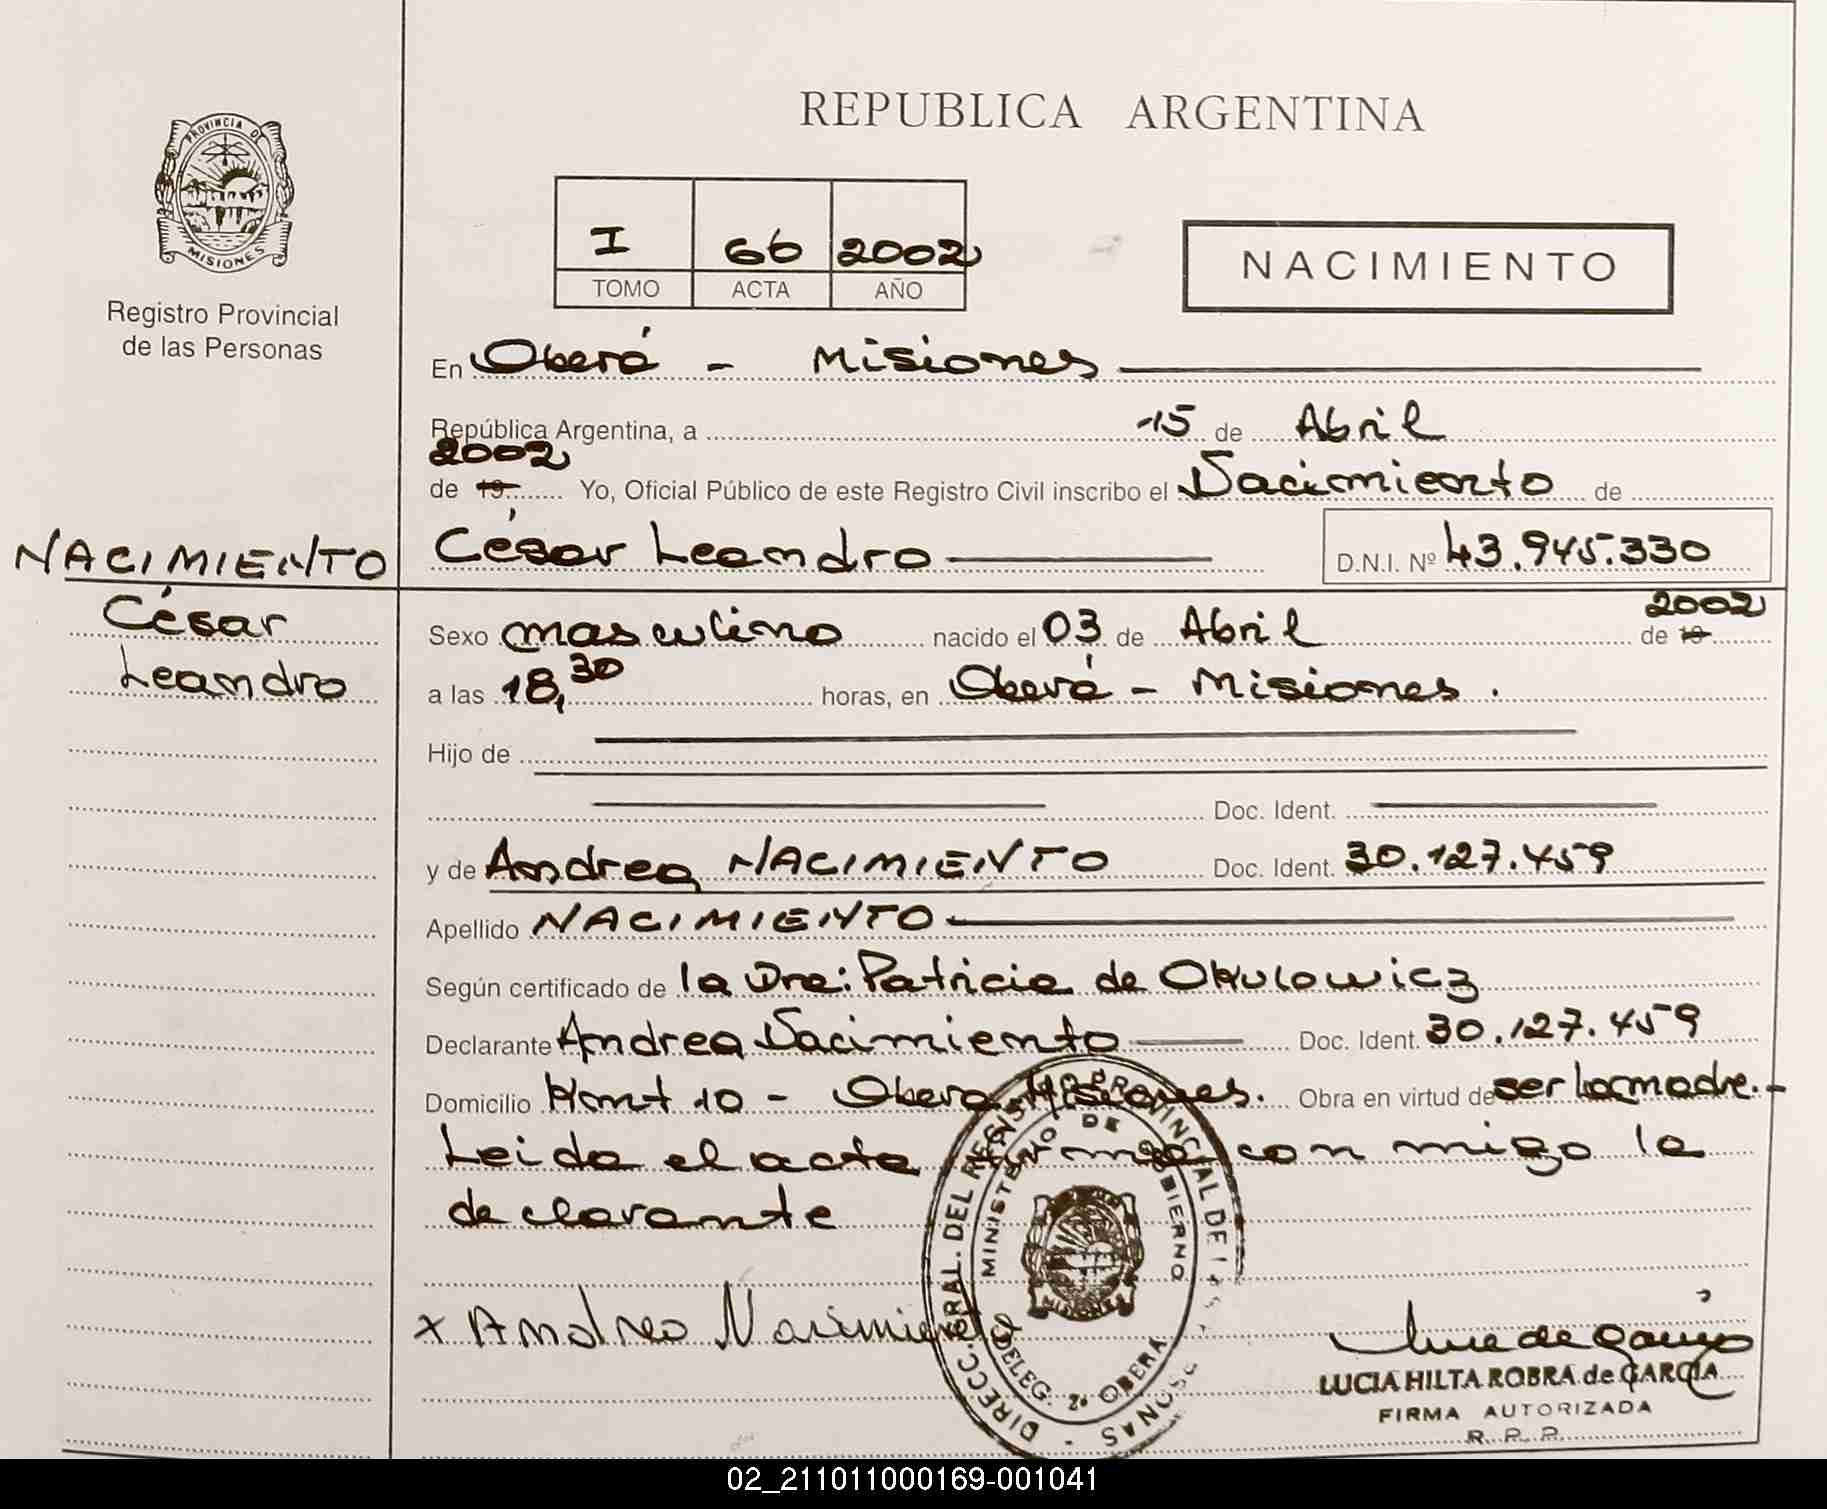 REPUBLICA ARGENTINA
PROVINCIA DE
MISIONES
Registro Provincial
de las Personas
I 66 2002
TOMO ACTA AÑO
NACIMIENTO
En Oberá - Misiones
República Argentina, a 15 de Abril
2002
de 19 Yo, Oficial Público de este Registro Civil inscribo el Nacimiento de
César Leandro D.N.I. Nº 43.945.330
NACIMIENTO
César
Leandro
2002
Sexo masculino nacido el 03 de Abril de 19
a las 18,30 horas, en Oberá - Misiones.
Hijo de
Doc. Ident.
y de Andrea NACIMIENTO Doc. Ident. 30.127.459
Apellido NACIMIENTO
Según certificado de la Dra: Patricia de Okulowicz
Declarante Andrea Nacimiento Doc. Ident. 30.127.459
Domicilio Mont 10 - Oberá Misiones. Obra en virtud de ser la madre.-
Leida el acta firma con migo la
declarante
x Andrea Nacimiento
DIRECC. GRAL. DEL REGISTRO PROVINCIAL DE LAS PERSONAS
MINISTERIO DE GOBIERNO
DELEG. 2ª OBERA
LUCIA HILTA ROBRA de GARCIA
FIRMA AUTORIZADA
R. P. P.
02_211011000169-001041